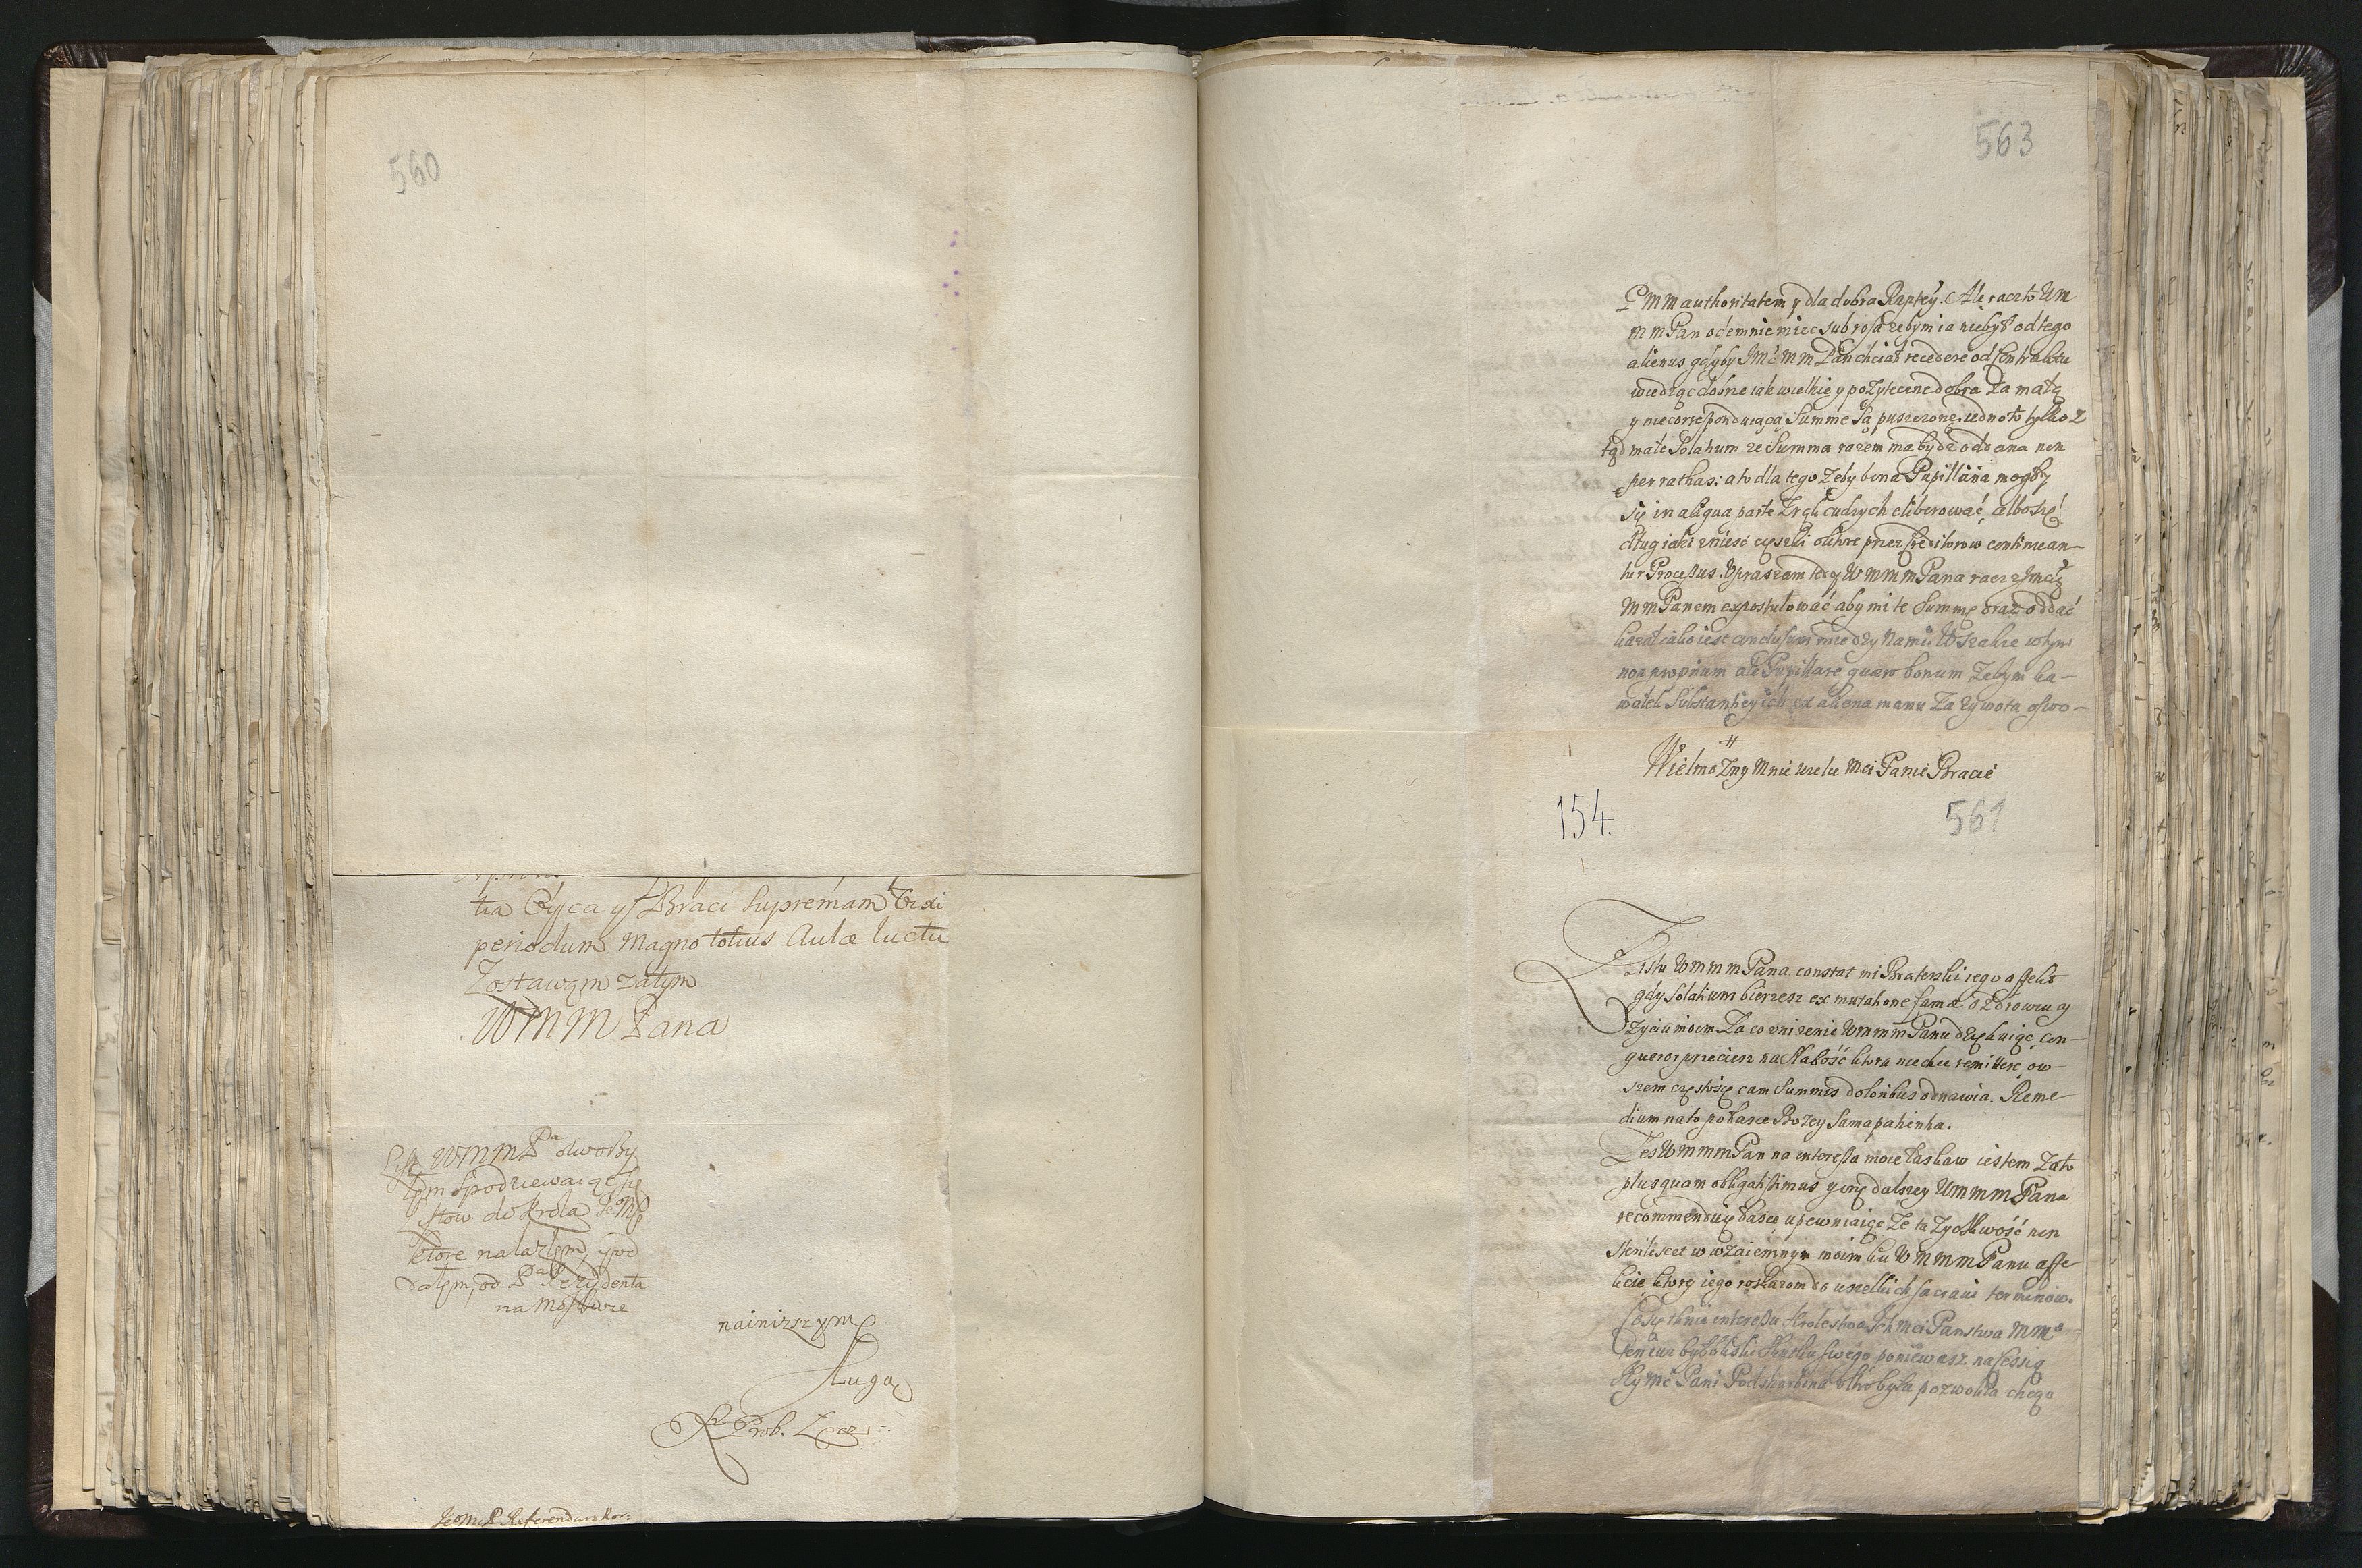 560
tia Oyca y Braci Supremam Vixi
periodum magno totius Aulæ luctu
Zostawam zatym
WMM Pana
List WMM Pa otworzy
łem spodziewaiąc się
Listow do Krola JeMci
ktore nalazłem, y od
dałem, od Pa Rezydenta
na Moskwie
nainizszym
Sługa
JeoMcP. Referendarz Kor:
563
PMM authoritatem y dla dobra Rzptey. Ale racz to WM
MM Pan odemnie miec sub rosa zebym ia niebył od tego
alienus gdyby JMć MM Pan chciał recedere od Contraktu
wiedząc dobrze iak wielkie y pozyteczne dobra Za małą
y niecorresponduiącą Summę Są puszczone, iedno to tylko z
tąd male Solatium ze Summa razem ma bydz oddana non
per rathas: a to dla tego Zeby bona Pupillána mogły
się in aliqua parte Z rąk cudzych eliberować, albo tez
dług iaki znieść cięszki o ktore przez Creditorow continuan-
tur Processus. Upraszam tedy WMMM Pana racz z JMcią
MM Panem expostulować aby mi te Summę oraz oddać
kazał iako iest conclusum miedzy nami. Wszakze w tym
non proprium ale Pupillare quæro bonum Zebym ka-
wałek Substantiey ich ex aliena manu Za zywota oswo-
Wielmozny Mnie wielce Mci Panie Bracie
154.
561
Z Listu WMMM Pana constat mi Braterski iego affekt
gdy Solatium bierzesz ex mutatione famæ o Zdrowiu y
Zyciu moim Za co unizenie WMMM Panu dziękuię, con-
queror przeciesz na Słabość ktora niechce remittere, ow-
szem częstosię cum Summis doloribus odnawia. Reme-
dium na to po łasce Bozey Sama patientia.
Zes WMMM Pan na interessa moie łaskaw iestem Zato
plusquam obligatissimus y one dalszey WMMM Pana
recommenduię łasce upewniaiąc Ze ta Zyczliwość non
sterilescet w wzaiemnym moim ku WMMM Panu affe-
kcie, ktory iego roskazom do wszelkich saciaui terminow.
Co się tknie interessu Krolestwa Ich Mci Panstwa MM
ten iuz był bliski skutku swego poniewasz na sessią
Jey Mć Pani Podskarbina ktora była pozwoliła chcąc